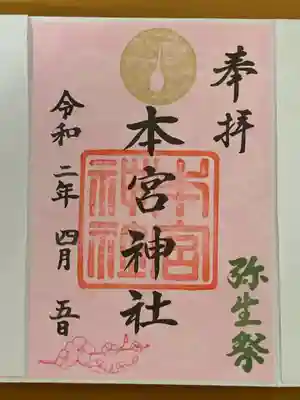 奉拝
弥生祭
本宮神社
本宮神社
令和二年四月五日